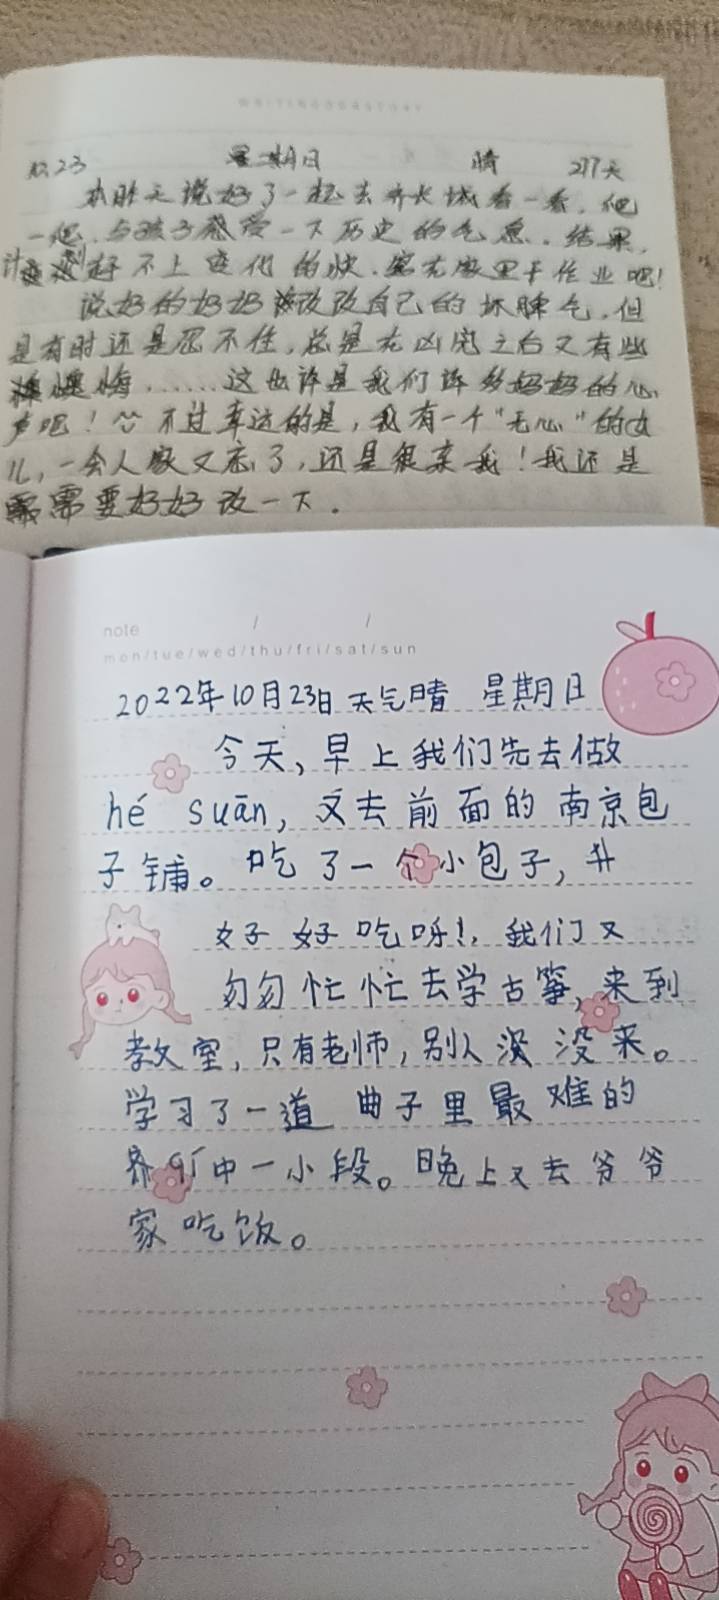 WRITINGOURSTORY
10.23 星期日 晴 277天
本昨天说好了一起去齐长城看一看，爬
一爬，与孩子感受一下历史的气息。结果，
计划赶不上变化的快，窝在家里干作业吧！
说好的好好改改自己的坏脾气，但
是有时还是忍不住，总是在凶完之后又有些
懊悔……这也许是我们许多妈妈的心
声吧！不过幸运的是，我有一个“无心”的女
儿，一会人家又忘了，还是很亲我！我还是
需要好好改一下．
note / /
mon/tue/wed/thu/fri/sat/sun
2022年10月23日天气晴 星期日
今天，早上我们先去做
hé suān，又去前面的南京包
子铺。吃了一个小包子，
好好吃呀！，我们又
匆匆忙忙去学古筝，来到
教室，只有老师，别人没来。
学习了一道曲子里最难的
中一小段。晚上又去爷爷
家吃饭。